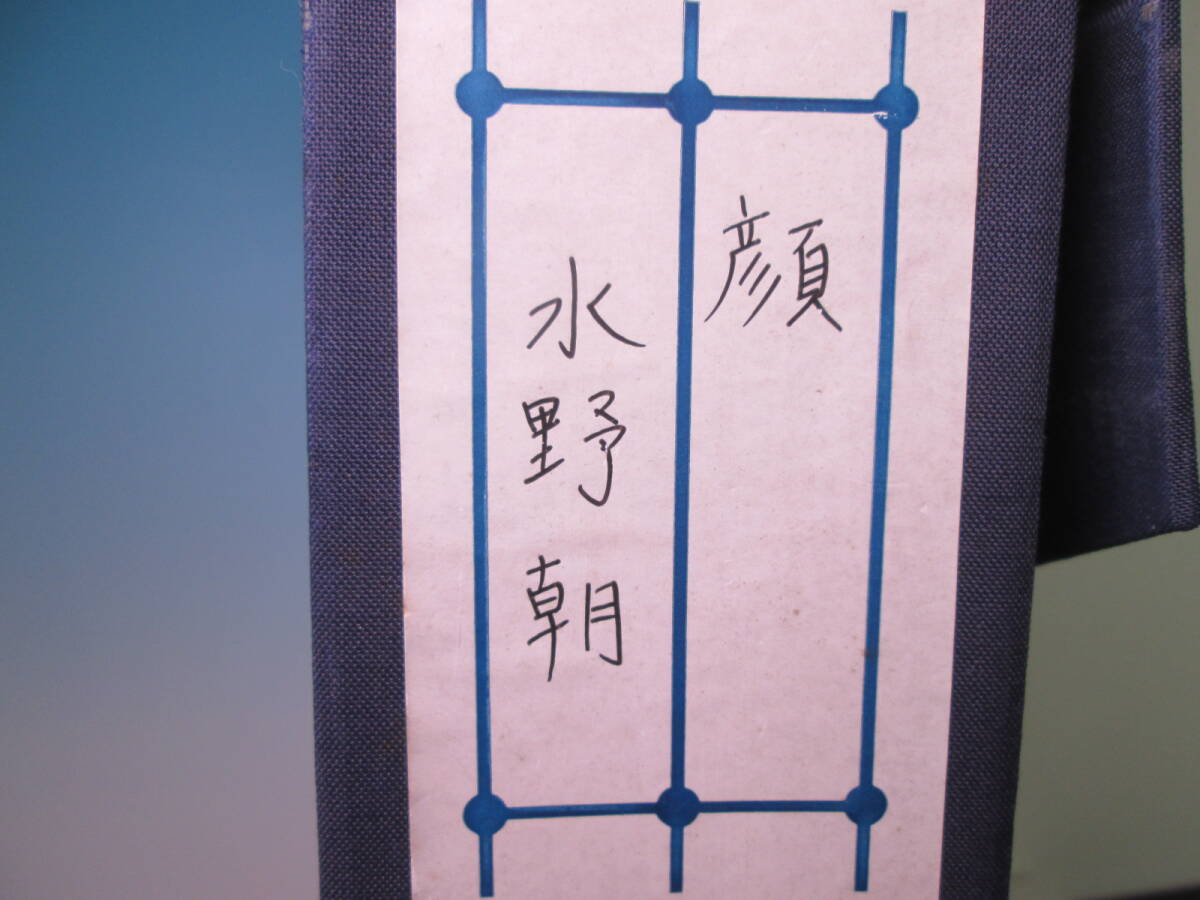 顔
水野朝